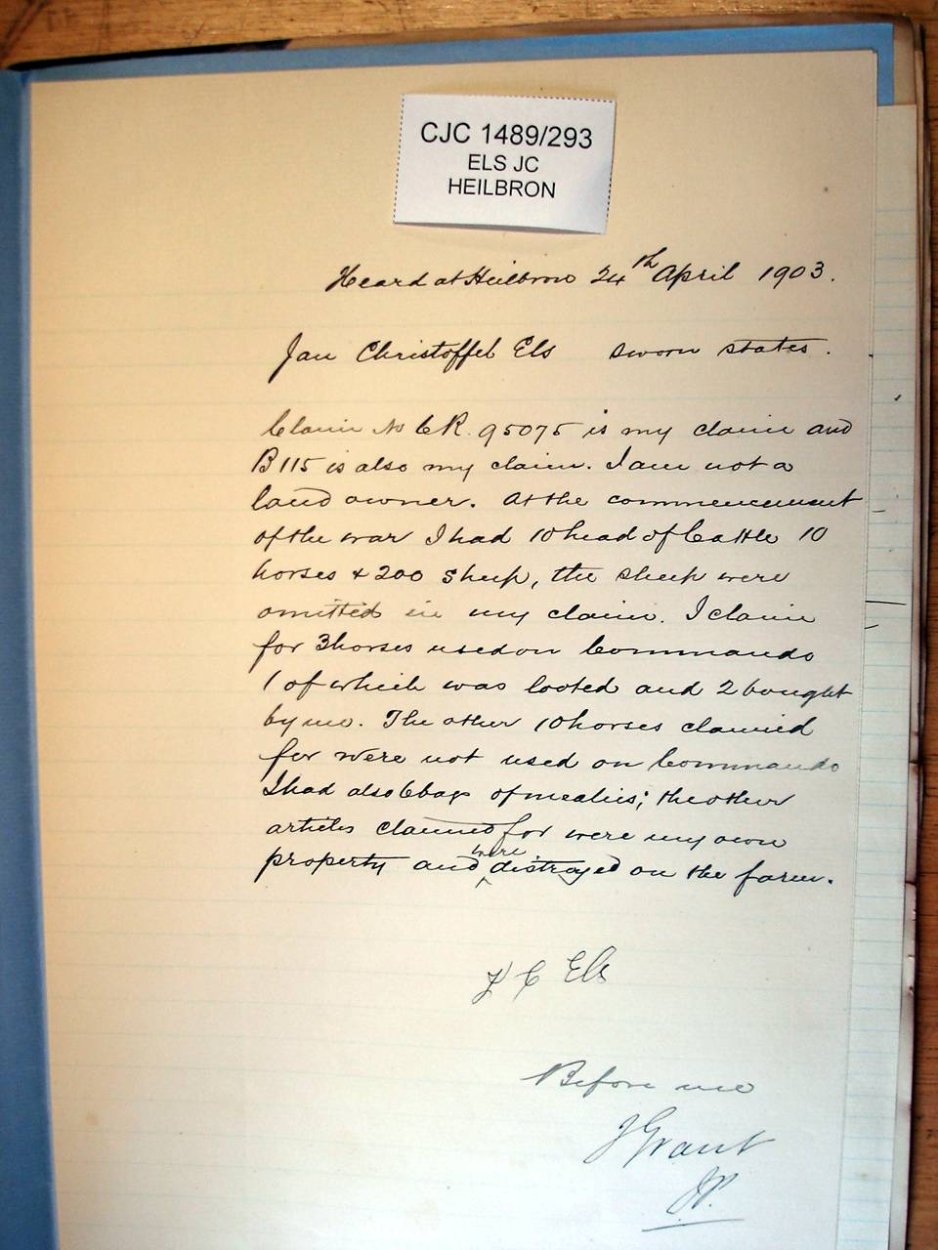 CJC 1489/293
ELS JC
HEILBRON
Heard at Heilbron 24th April 1903.
Jan Christoffel Els sworn states.
Claim No CR. 95075 is my claim and
B115 is also my claim. I am not a
land owner. At the commencement
of the war I had 10 head of Cattle 10
horses & 200 sheep, the sheep were
omitted in my claim. I claim
for 3 horses used on Commando
1 of which was looted and 2 bought
by me. The other 10 horses claimed
for were not used on Commando
I had also 6 bags of mealies; the other
articles claimed for were my own
property and were distroyed on the farm.
J C Els
Before me
J Grant
JP.